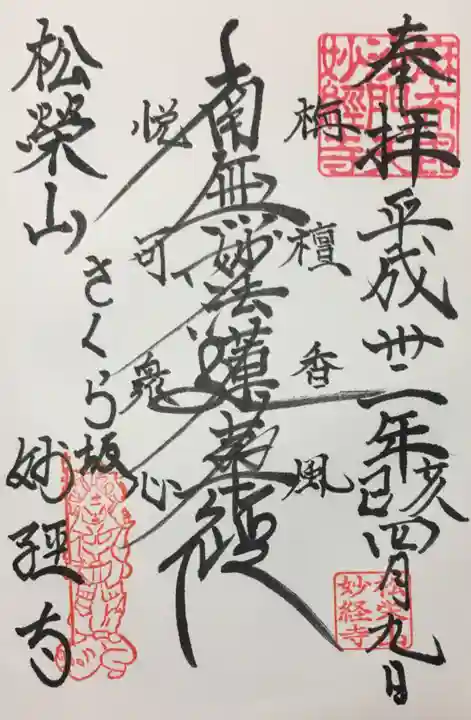 奉拝 平成丗一年己亥四月九日
栴檀香風
南無妙法蓮華経
悦可衆心
松榮山 さくら坂 妙經寺
松栄山
妙経寺